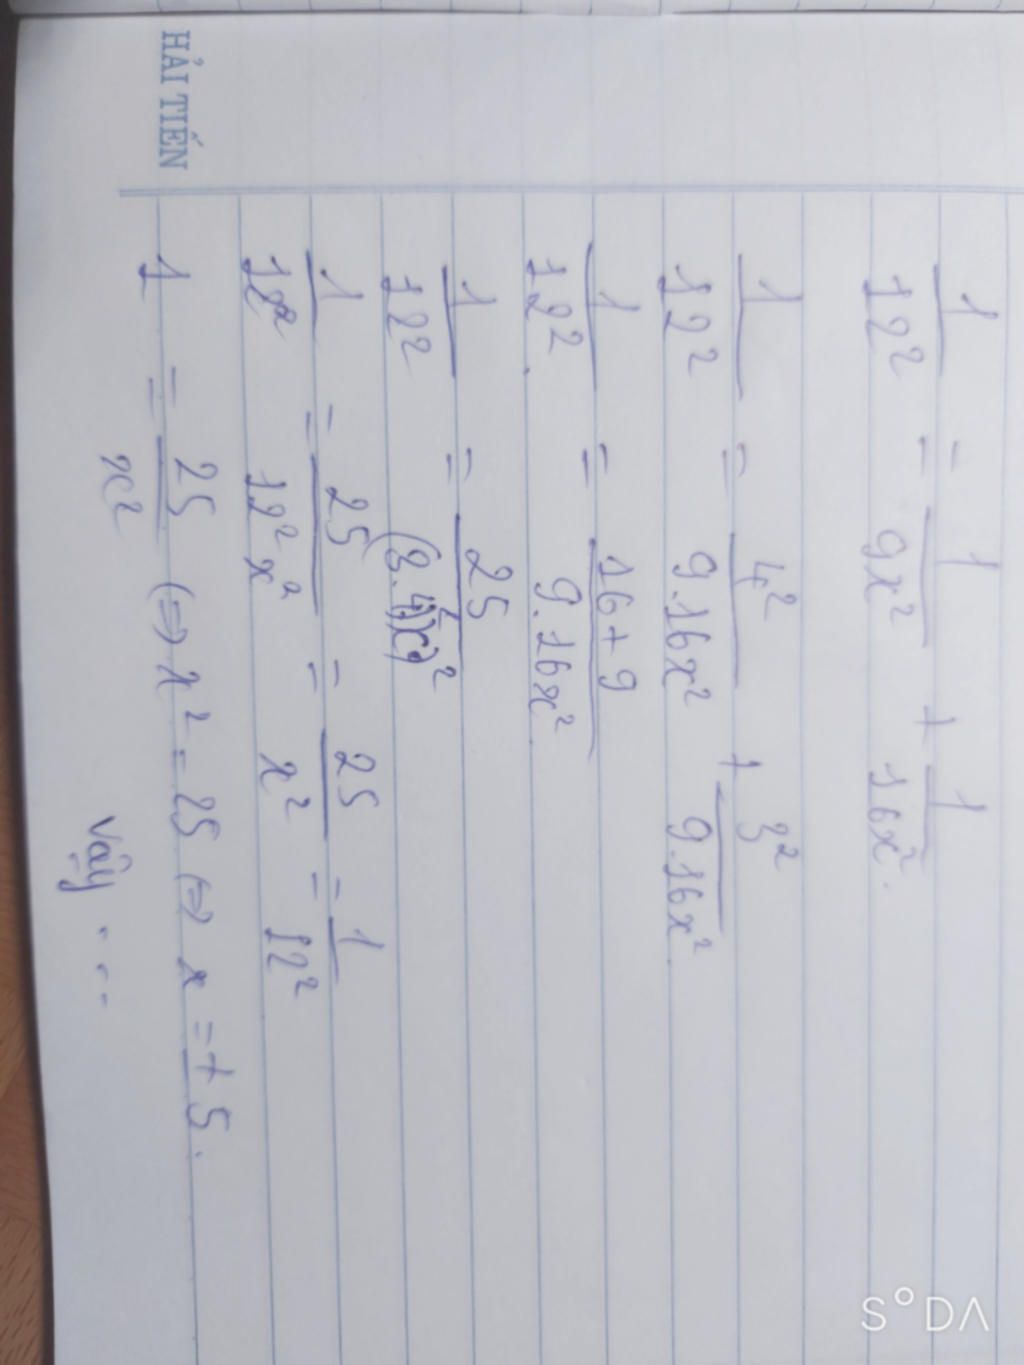 HẢI TIẾN
1/12² = 1/9x² + 1/16x².
1/12² = 4²/9.16x² + 3²/9.16x²
1/12² = 16+9/9.16x²
1/12² = 25/(3.4x)²
1/12² = 25/12²x² = 25/x² = 1/12²
1 = 25/x² (=) x² = 25 (=) x = ± 5.
Vậy ...
S°DA